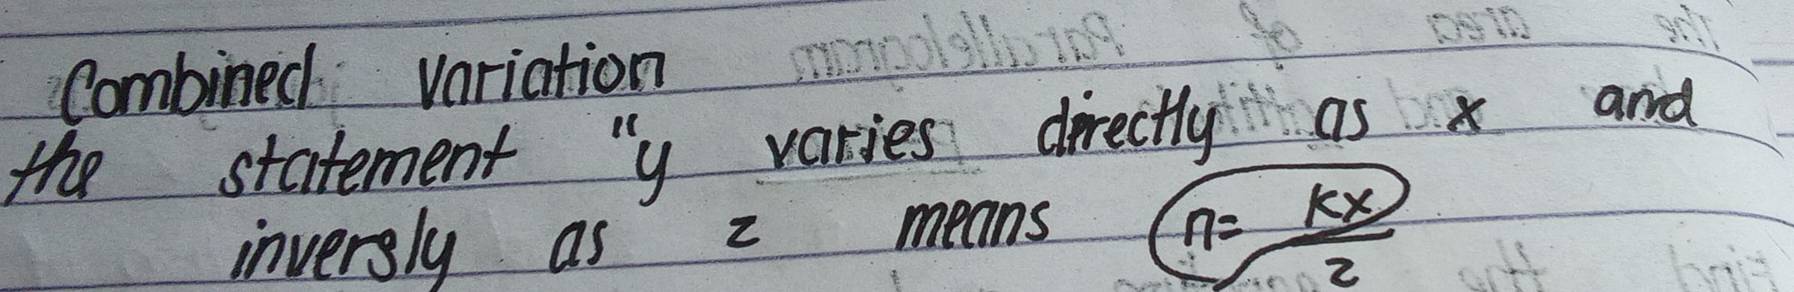 Combined variation
the statement "y varies directly as x and
inversly as z means n= kx/z